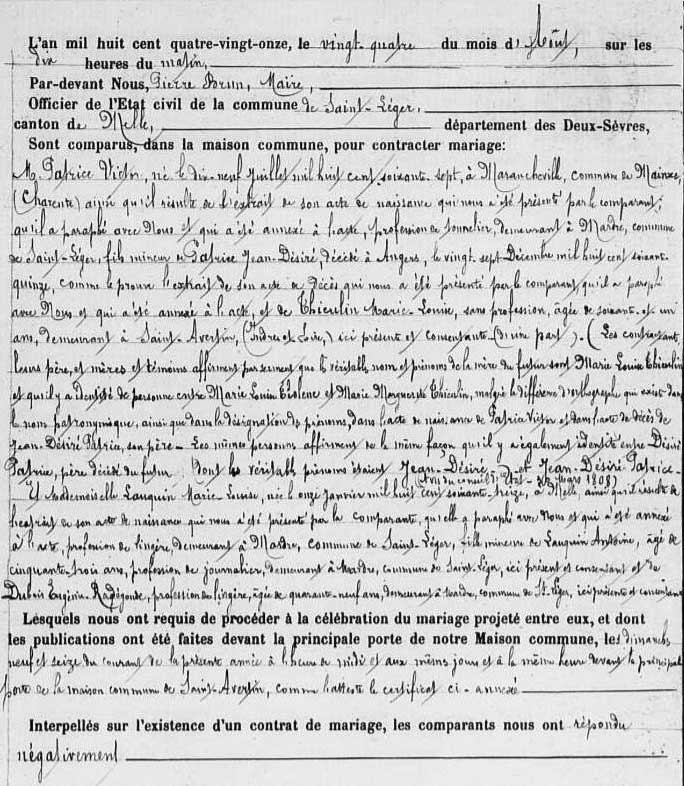 L'an mil huit cent quatre-vingt-onze, le vingt-quatre du mois d'Août, sur les
dix heures du matin,
Par-devant Nous, Pierre Brun, Maire,
Officier de l'Etat civil de la commune de Saint-Léger,
canton de Melle, département des Deux-Sèvres,
Sont comparus, dans la maison commune, pour contracter mariage:
M. Patrice Victor, né le dix-neuf Juillet mil huit cent soixante-sept, à Marancheville, commune de Mainxe,
(Charente) ainsi qu'il résulte de l'extrait de son acte de naissance qui nous a été présenté par le comparant;
qu'il a paraphé avec Nous et qui a été annexé à l'acte, profession de tonnelier, demeurant à Mardre, commune
de Saint-Léger, fils mineur de Patrice Jean-Désiré décédé à Angers, le vingt-sept Décembre mil huit cent soixante-
quinze, comme le prouve l'extrait de son acte de décès qui nous a été présenté par le comparant, qu'il a paraphé
avec Nous et qui a été annexé à l'acte, et de Thieulin Marie-Louise, sans profession, âgée de soixante-et-un
ans, demeurant à Saint-Avertin, (Indre-et-Loire,) ici présente et consentante (d'une part). (Les contractants,
leurs père, et mères et témoins affirment par serment que le véritable nom et prénoms de la mère du futur sont Marie Louise Thieulin
et qu'il y a identité de personne entre Marie Louise et Marie Marguerite Thieulin, malgré la différence d'orthographe qui existe dans
le nom patronymique, ainsi que dans la désignation des prénoms, dans l'acte de naissance de Patrice Victor et dans l'acte de décès de
Jean-Désiré Patrice, son père - Les mêmes personnes affirment de la même façon qu'il y a également identité entre Désiré
Patrice, père décédé du futur dont les véritables prénoms étaient Jean-Désiré, et Jean-Désiré Patrice-
(Avis du conseil d'Etat - Mars 1808)
Et Mademoiselle Lauquin Marie Louise, née le onze Janvier mil huit cent soixante-treize, à Melle, ainsi qu'il résulte de
l'extrait de son acte de naissance qui nous a été présenté par la comparante, qu'elle a paraphé avec Nous et qui a été annexé
à l'acte, profession de lingère, demeurant à Mardre, commune de Saint-Léger, fille mineure de Lauquin Antoine, âgé de
cinquante-trois ans, profession de journalier, demeurant à Mardre, commune de Saint-Léger, ici présent et consentant et de
Dubois Eugénie-Radégonde, profession de lingère, âgée de quarante-neuf ans, demeurant à Mardre, commune de St-Léger, ici présente et consentante
Lesquels nous ont requis de procéder à la célébration du mariage projeté entre eux, et dont
les publications ont été faites devant la principale porte de notre Maison commune, les dimanches
neuf et seize du courant de la présente année à l'heure de midi et aux mêmes jours et à la même heure devant la principale
porte de la maison commune de Saint-Avertin, comme l'atteste le certificat ci-annexé
Interpellés sur l'existence d'un contrat de mariage, les comparants nous ont répondu
négativement